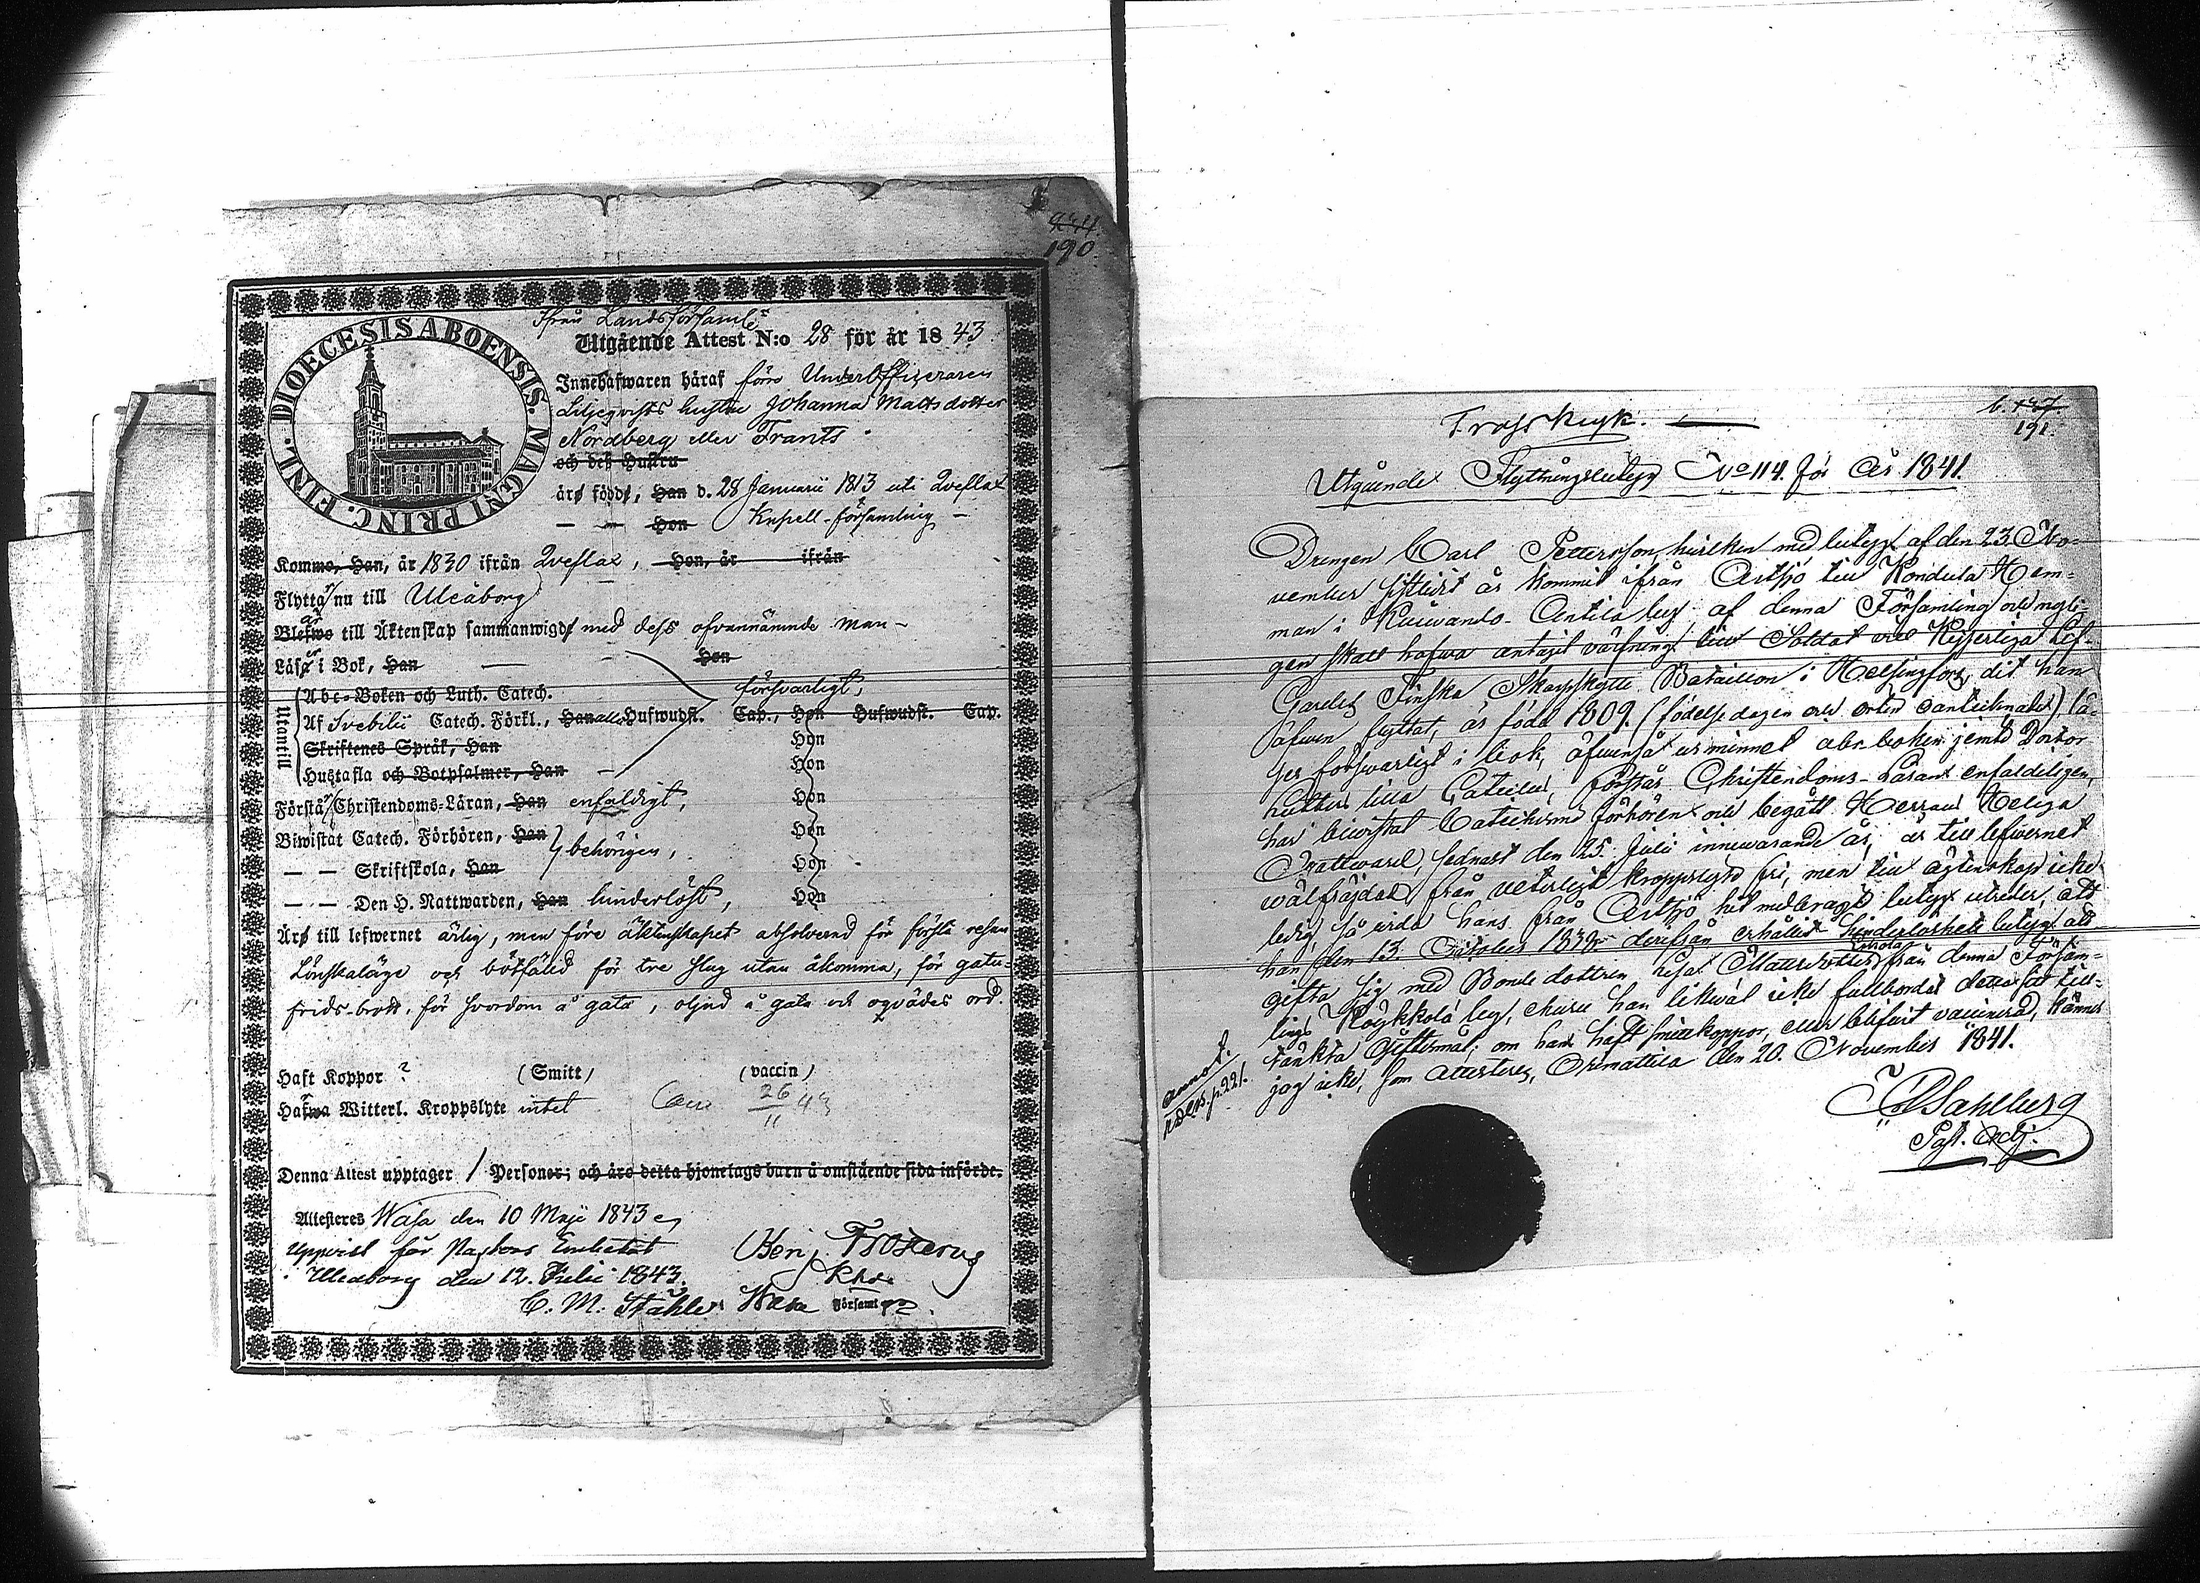 244.
190.
DIOECESIS ABOENSIS. MAGNI PRINC. FINL.
ifrån Landsförsaml:
Utgående Attest N:o 28 för år 1843
Innehafwaren häraf förra Underofficeraren
Liljeqvists hustru Johanna Mattsdotter
Nordberg eller Frants
och deß Hustru
äro född, Han d. 28 Januarii 1813 uti Qveflax
— — Hon Kapell-församling —
Kommo, Han, år 1830 ifrån Qveflax, Hon, år ifrån
Flyttar nu till Uleåborg
Blefwo är till Äktenskap sammanwigd med dess ofvannämnde man —
Läser i Bok, Han — Hon
Utantill
Abc-Boken och Luth. Catech. försvarligt,
Af Svebilii Catech. Förkl., Han alla Hufwudst. Cap., Hon Hufwudst. Cap.
Skriftenes Språk, Han Hon
Hustafla och Botpsalmer, Han — Hon
Förstår Christendoms-Läran, Han enfaldigt, Hon
Biwistat Catech. Förhören, Han behörigen, Hon
— — Skriftskola, Han Hon
— — Den H. Nattwarden, Han hinderlöst, Hon
Äro till lefwernet ärlig, men före äktenskapet absolverad för första resan
Lönskaläge och bötfäld för tre slag utan åkomma, för gatu-
frids-brott, för svordom å gata, oljud å gata och oqvädes ord.
Haft Koppor ? (Smitt) (vaccin)
Hafwa Witterl. Kroppslyte intet 26/11 43
Denna Attest upptager 1 Personer; och äro detta hjonelags barn å omstående sida införde.
Attesteres Wasa den 10 Maji 1843
Uppvist för Pastors Embetet
i Uleåborg den 12. Julii 1843.
C. M. Ståhle Wasa Församl
b. 437
191.
Utgående Flyttningsbetyg No 114. för År 1841.
Drengen Carl Pettersson, hvilken med betyg af den 23 No-
vember sistledit år kommit ifrån Artsjö till Kondula Hem-
man i Kuiwando Antila by, af denna Församling och nyli-
gen skall hafwa antagit värfning till Soldat vid Kejserliga Lif-
Gardets Finska Skarpskytte Bataillon i Helsingfors, dit han
äfwen flyttat, är född 1809. (födelse dagen och orten oantecknadt) lä-
ser forswarligt i bok, äfwenså ur minnet abc boken jemte Doctor
Luthers lilla Cateches, förstår Christendoms-Läran enfaldeligen,
har biwistat Catechismi förhören och begått Herrans Heliga
Nattward, sednast den 25. Julii innewarande år, är till lefwernet
wälfrejdad, från veterligt kroppslyte fri, men till ägtenskap icke
ledig, så vida hans från Artsjö hit medbragte betyg utreder, att
han den 13. October 1839 derifrån erhållit hinderlöshets betyg att
gifta sig med Bonde dottren Lisa Mattsdotter från denna Försam-
lings Koykkola by, churu han likwäl icke fullbordat detta sitt till-
tänkta Giftermål, om han haft smittkoppor, eller blifwit vaccinerad, känner
jag icke, som attesteras, Orimattila den 20. November 1841.
annot.
Dahlberg
Past. Adj.